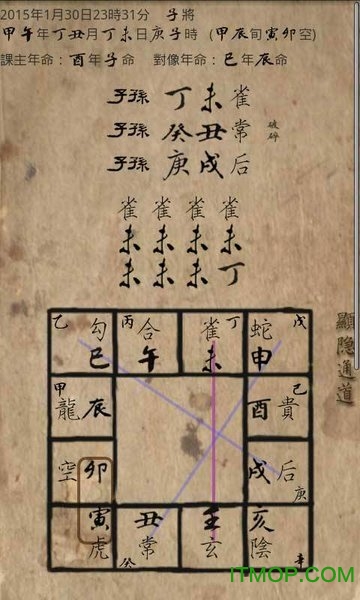 2015年1月30日23時31分 子將
甲午年丁丑月丁未日庚子時 (甲辰旬寅卯空)
課主年命:子年子命 對像年命:巳年辰命
子孫 丁未雀
子孫 癸丑常 破碎
子孫 庚戌后
雀雀雀雀
未未未未
未未未丁
乙 勾 丙 合 雀 丁 蛇 戊
巳 午 未 申
顯隐通道
甲 己
龍辰 酉貴
空卯 戌后
庚
寅 丑 壬 亥
虎 癸 常 玄 陰 辛
ITMOP.COM